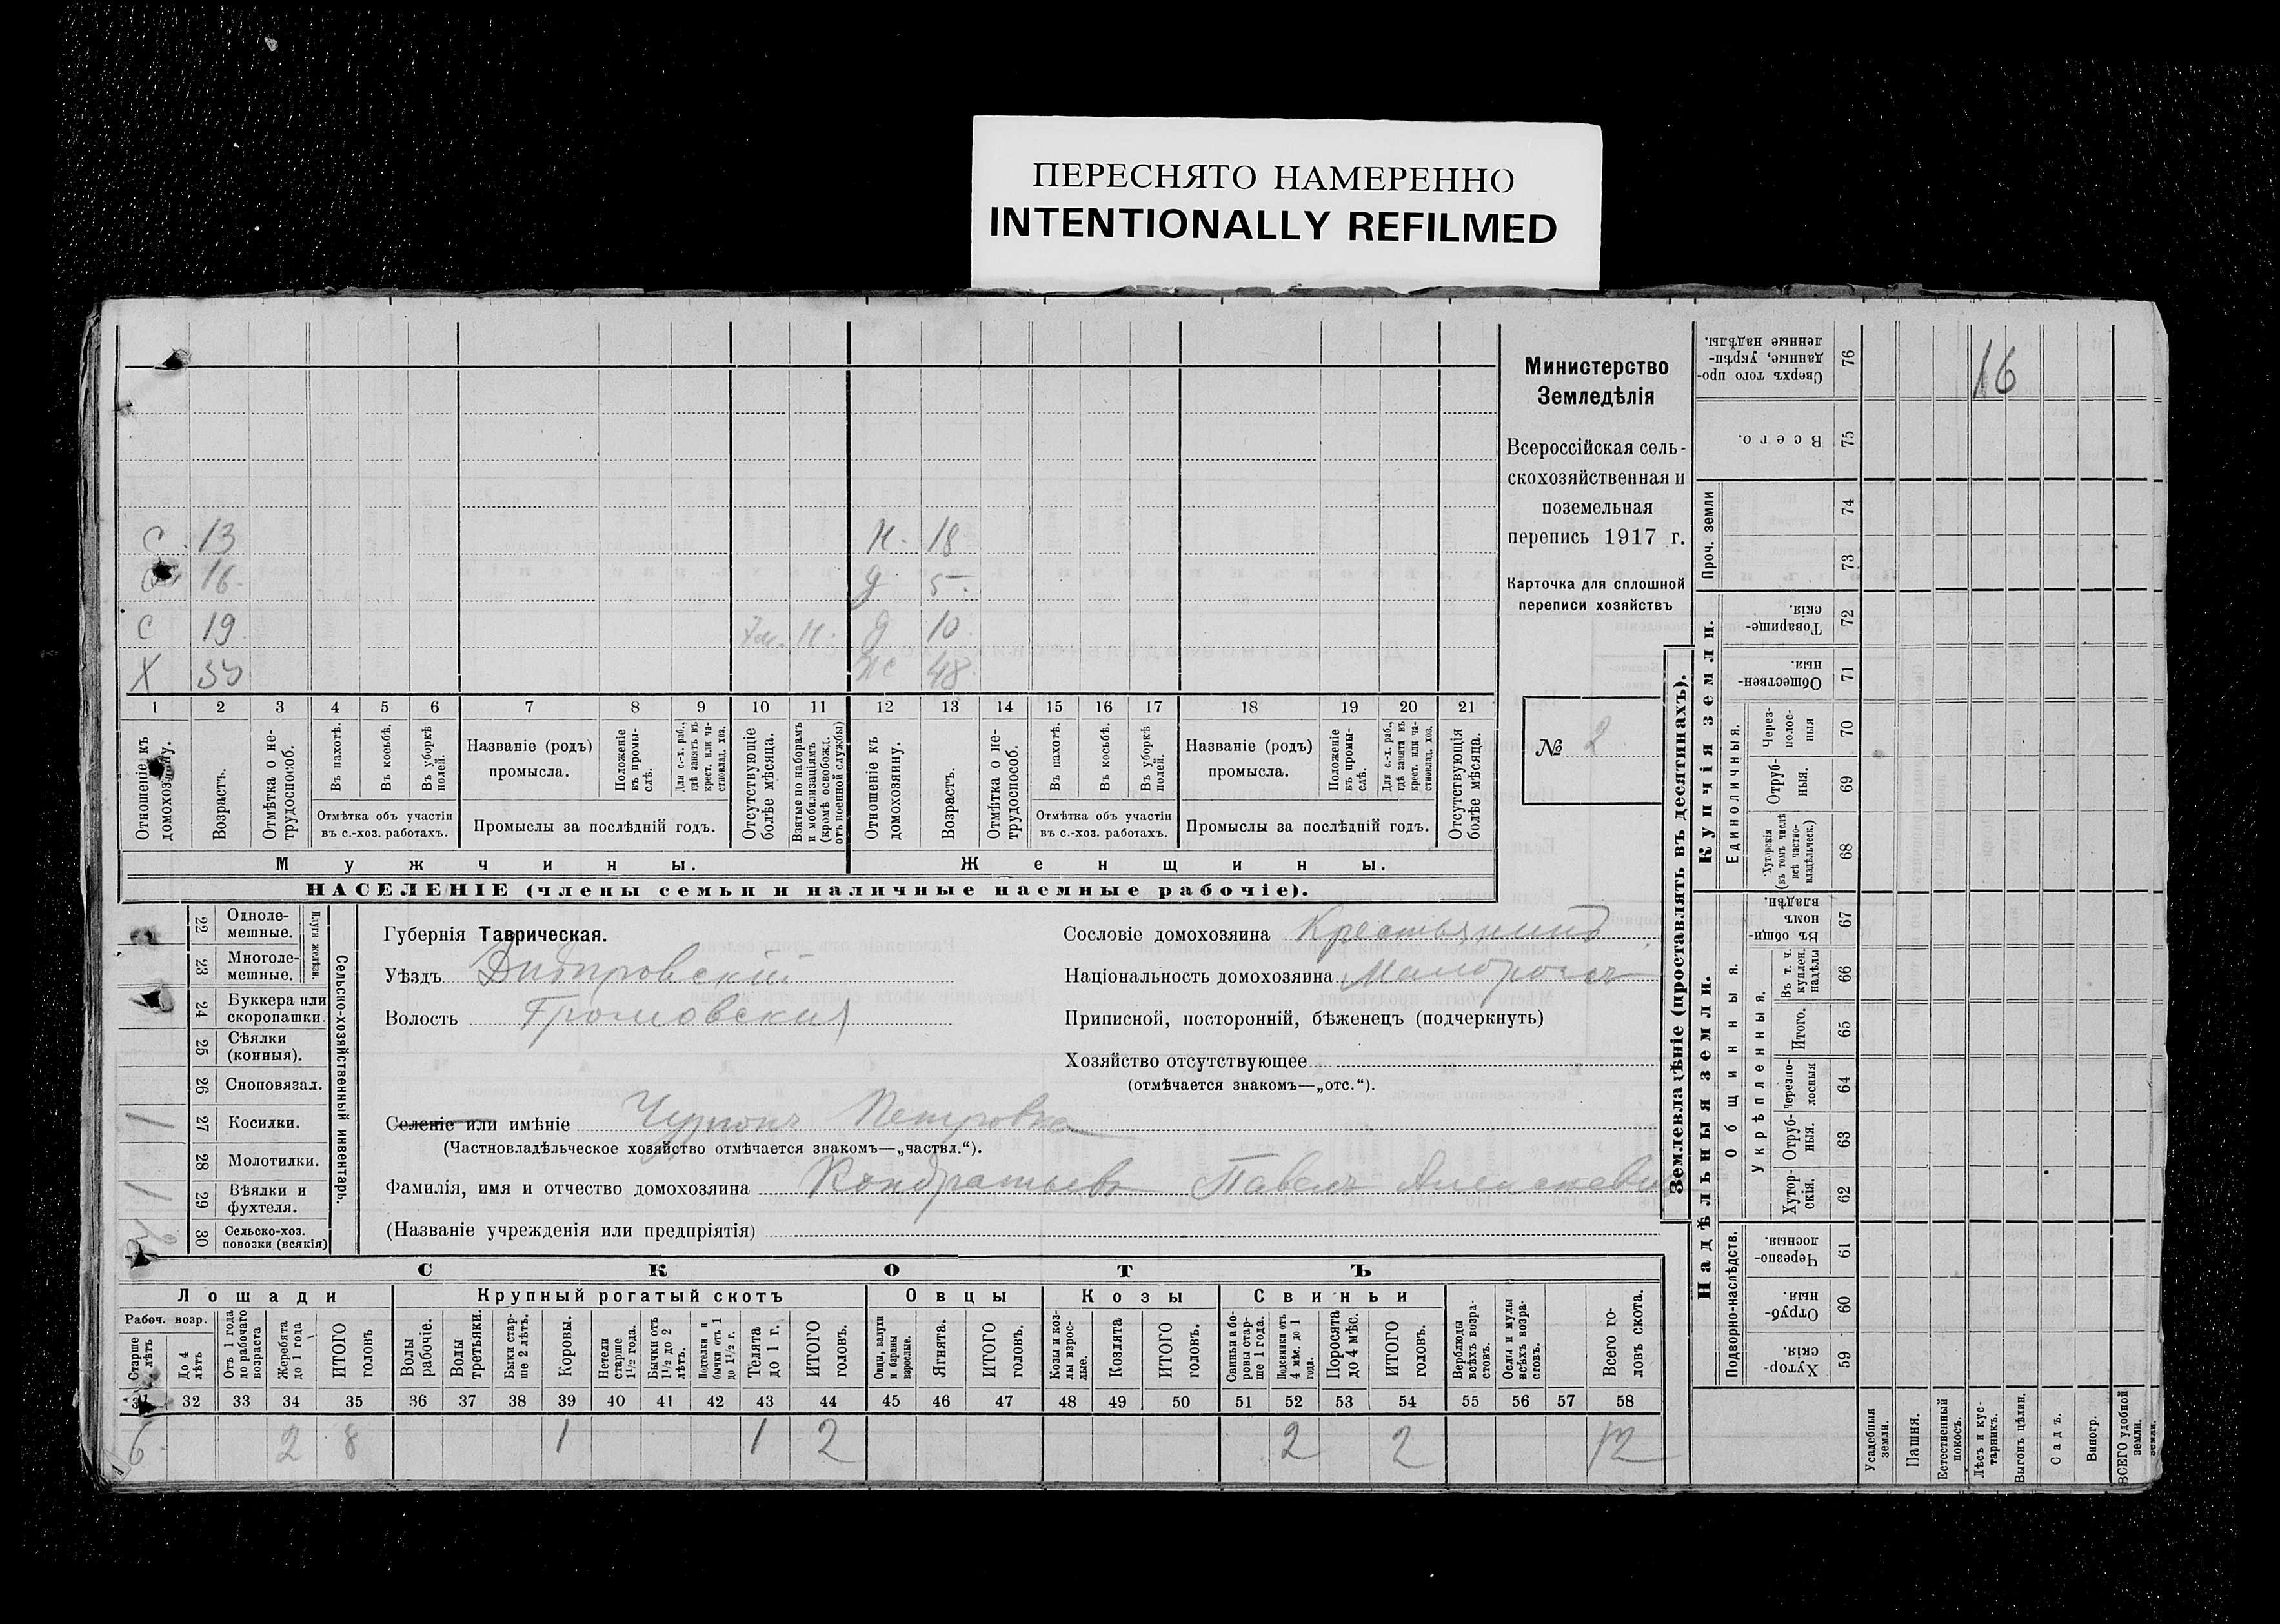 ПЕРЕСНЯТО НАМЕРЕННО
INTENTIONALLY REFILMED
Министерство
Земледѣлія
Всероссійская сель-
скохозяйственная и
поземельная
перепись 1917 г.
Карточка для сплошной
переписи хозяйствъ
№ 2
16
С 13
16
С 19 7м. Н.
Х
Н. 18
Д 5
Д 10
Ж 48
1 2 3 4 5 6 7 8 9 10 11 12 13 14 15 16 17 18 19 20 21
Отношеніе къ домохозяину.
Возрастъ.
Отмѣтка о не-трудоспособ.
Въ пахотѣ.
Въ косьбѣ.
Въ уборкѣ полей.
Отмѣтка объ участіи
въ с.-хоз. работахъ.
Названіе (родъ)
промысла.
Положеніе въ промы-слѣ.
Для с.-х. раб., гдѣ занятъ въ крест. или ча-стновлад. хоз.
Промыслы за послѣдній годъ.
Отсутствующіе болѣе мѣсяца.
Взятые по наборамъ и мобилизаціямъ (кромѣ освобожд. отъ военной службы)
Отношеніе къ домохозяину.
Возрастъ.
Отмѣтка о не-трудоспособ.
Въ пахотѣ.
Въ косьбѣ.
Въ уборкѣ полей.
Отмѣтка объ участіи
въ с.-хоз. работахъ.
Названіе (родъ)
промысла.
Положеніе въ промы-слѣ.
Для с.-х. раб., гдѣ занята въ крест. или ча-стновлад. хоз.
Промыслы за послѣдній годъ.
Отсутствующія болѣе мѣсяца.
Мужчины. Женщины.
НАСЕЛЕНІЕ (члены семьи и наличные наемные рабочіе).
Сельско-хозяйственный инвентарь.
Плуги желѣзн.
22 Одноле-мешные.
23 Многоле-мешные.
24 Буккера или скоропашки.
25 Сѣялки (конныя).
26 Сноповязал.
27 Косилки. 1
28 Молотилки.
29 Вѣялки и фухтеля. 1
30 Сельско-хоз. повозки (всякія)
Губернія Таврическая.
Уѣздъ Днѣпровскій
Волость Громовская
Селеніе или имѣніе Петровка
(Частновладѣльческое хозяйство отмѣчается знакомъ—„частвл.“).
Фамилія, имя и отчество домохозяина Кондратьевъ Павелъ
(Названіе учрежденія или предпріятія)
Сословіе домохозяина Крестьянинъ
Національность домохозяина Малороссъ
Приписной, посторонній, бѣженецъ (подчеркнуть)
Хозяйство отсутствующее
(отмѣчается знакомъ—„отс.“).
СКОТЪ
Лошади Крупный рогатый скотъ Овцы Козы Свиньи
Рабоч. возр.
Старше 4 лѣтъ
До 4 лѣтъ
Отъ 1 года до рабочаго возраста
Жеребята до 1 года
ИТОГО головъ
Волы рабочіе.
Волы третьяки.
Быки стар-ше 2 лѣтъ.
Коровы.
Нетели старше 1½ года.
Бычки отъ 1½ до 2 лѣтъ.
Подтелки и бычки отъ 1 до 1½ г.
Телята до 1 г.
ИТОГО головъ.
Овцы, валухи и бараны взрослые.
Ягнята.
ИТОГО головъ.
Козы и коз-лы взрос-лые.
Козлята
ИТОГО головъ.
Свиньи и бо-ровы стар-ше 1 года.
Подсвинки отъ 4 мѣс. до 1 года.
Поросята до 4 мѣс.
ИТОГО головъ.
Верблюды всѣхъ возра-стовъ.
Ослы и мулы всѣхъ возра-стовъ.
Всего го-ловъ скота.
31 32 33 34 35 36 37 38 39 40 41 42 43 44 45 46 47 48 49 50 51 52 53 54 55 56 57 58
6 2 8 1 1 2 2 2 12
Землевладѣніе (проставлять въ десятинахъ).
Купчія земли.
Надѣльныя земли.
Сверхъ того про-данные, укрѣп-ленные надѣлы. 76
Всего. 75
Проч. земли 74 73
Товарище-скія. 72
Обществен-ныя. 71
Единоличныя.
Через-полос-ныя 70
Отруб-ныя. 69
Хуторскія (въ томъ числѣ всѣ частно-владѣльческ.) 68
Общинныя.
Въ общи-номъ владѣн. 67
Укрѣпленныя.
Въ т. ч. куплен. надѣлы 66
Итого. 65
Черезпо-лосныя 64
Отруб-ныя. 63
Хутор-скія. 62
Подворно-наслѣдств.
Черезпо-лосныя. 61
Отруб-ныя. 60
Хутор-скія. 59
Усадебныя земли.
Пашня.
Естественный покосъ.
Лѣсъ и кус-тарникъ.
Выгонъ цѣлин.
Садъ.
Виногр.
ВСЕГО удобной земли.